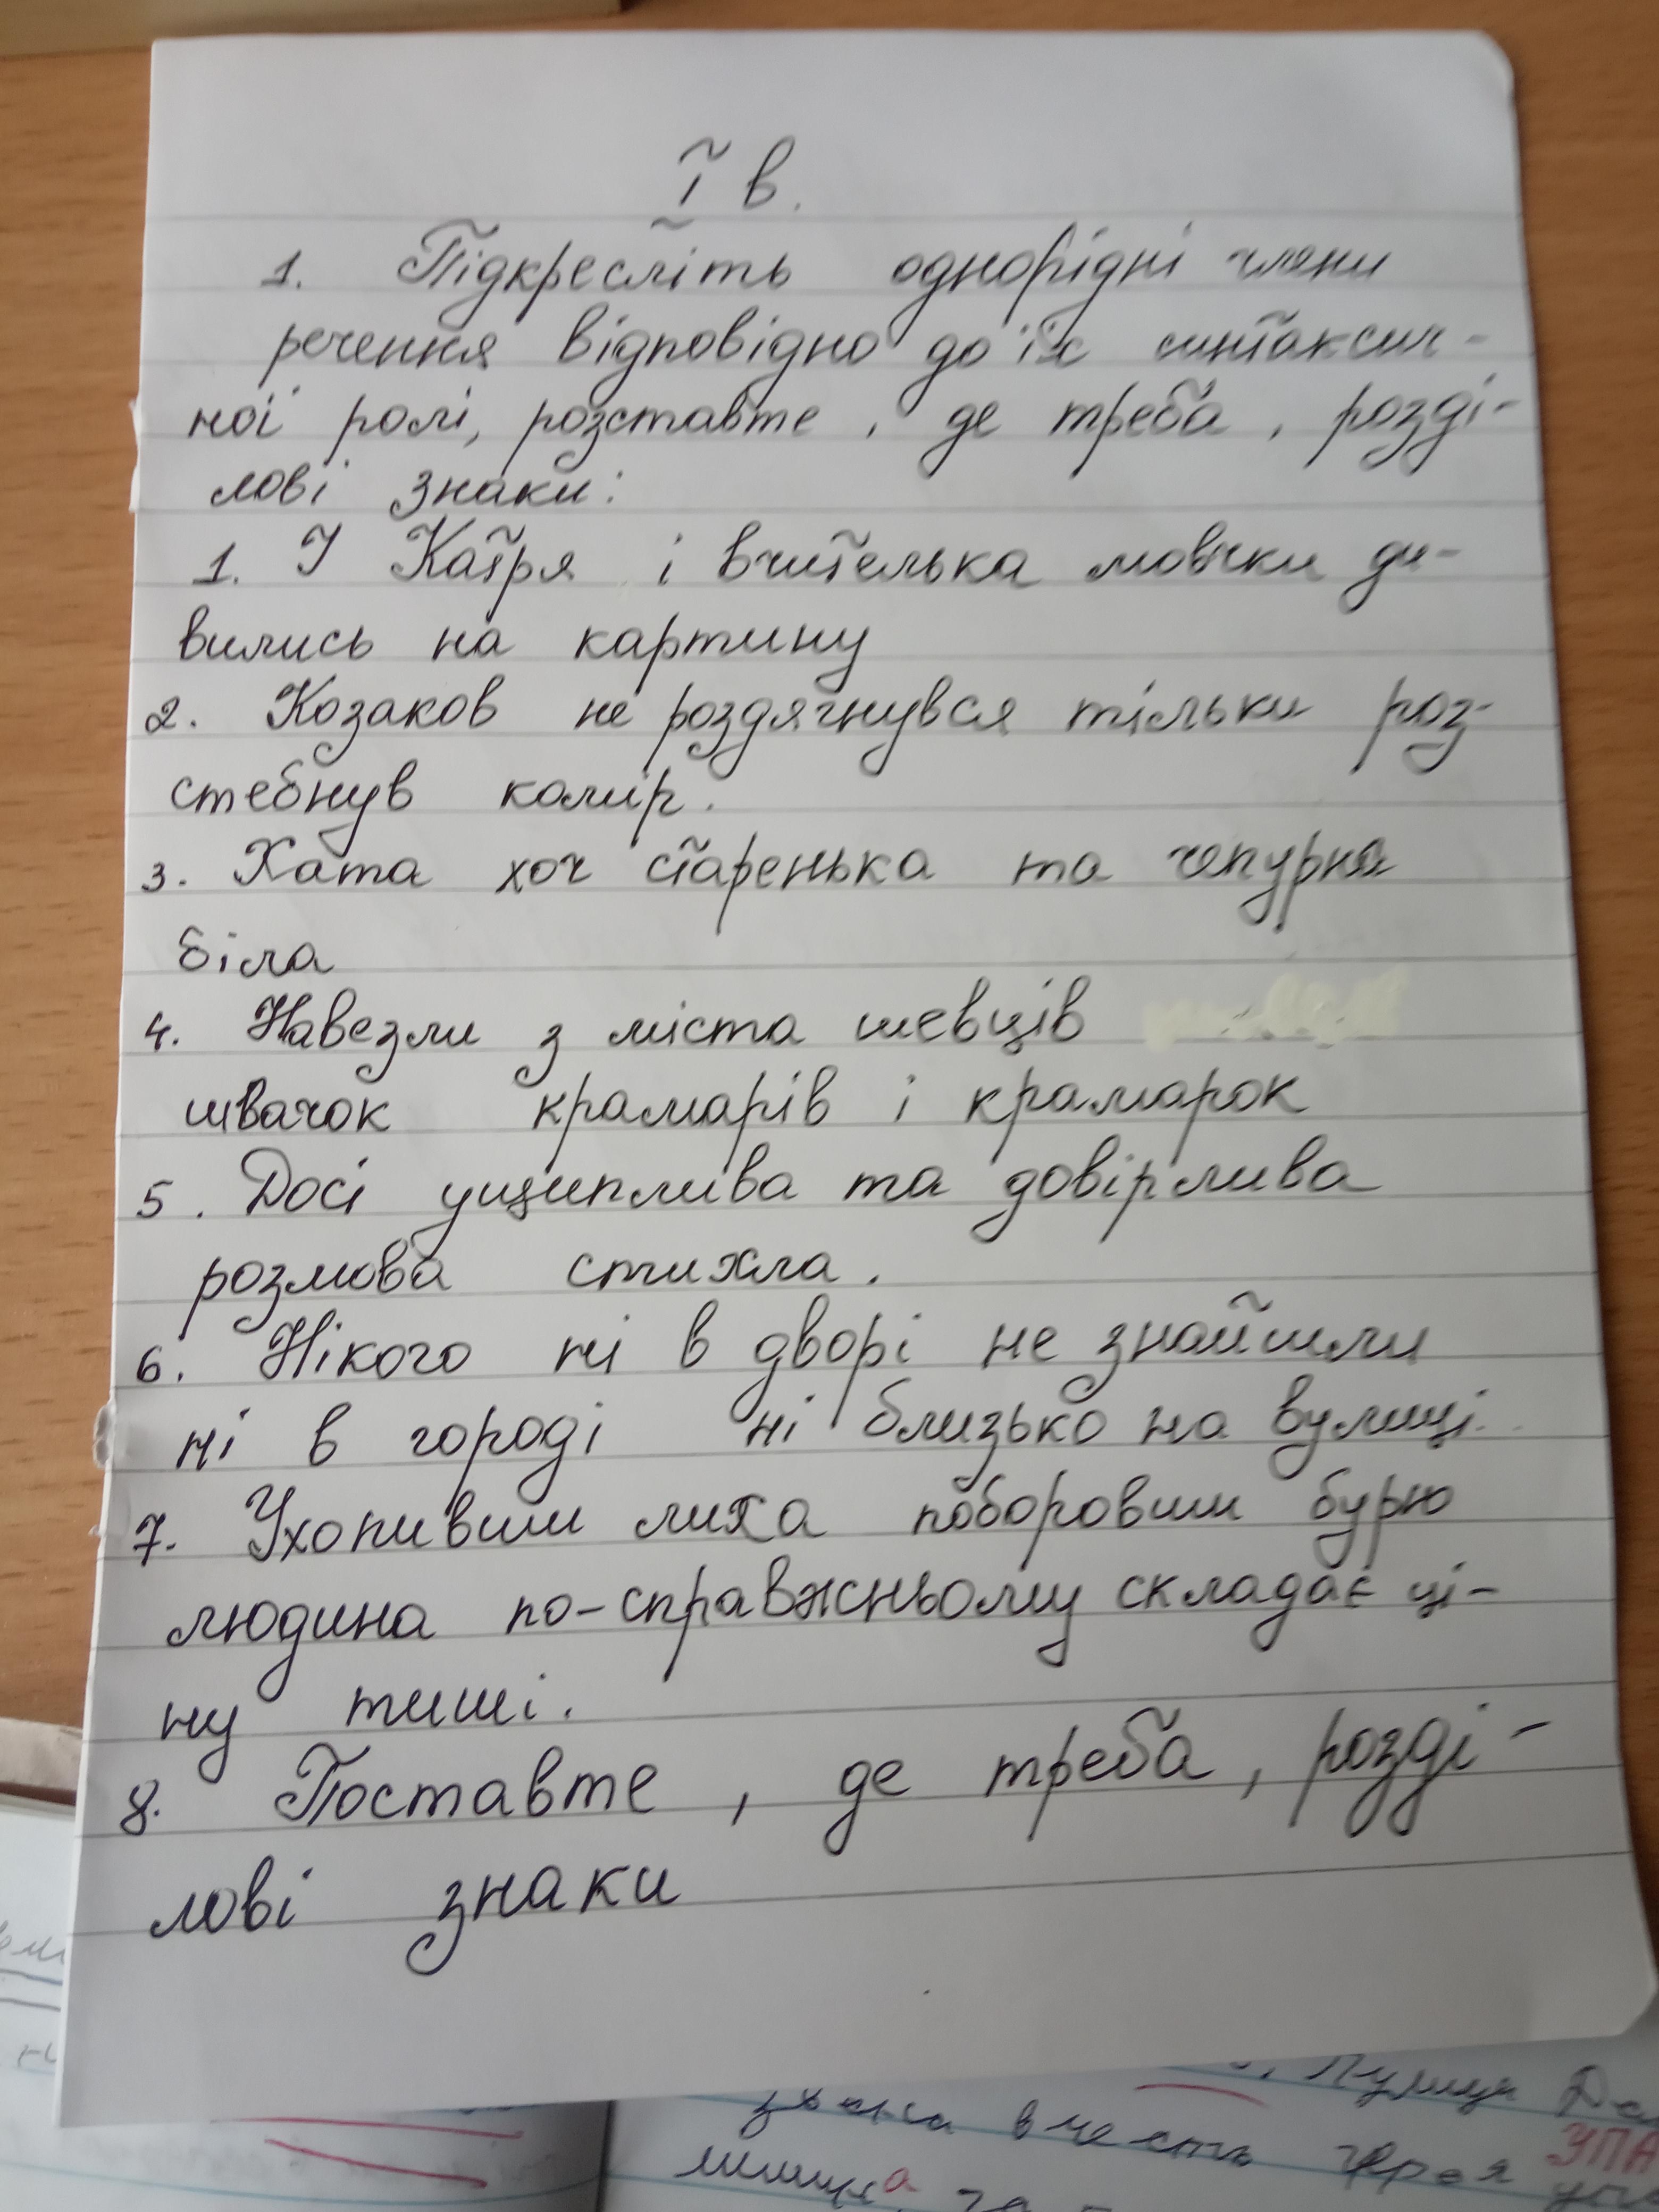 І в.
1. Підкресліть однорідні члени
речення відповідно до їх синтаксич-
ної ролі, розставте, де треба, розді-
лові знаки:
1. І Катря і вчителька мовчки ди-
вились на картину
2. Козаков не роздягнувся тільки роз-
стебнув комір.
3. Хата хоч старенька та чепурна
біла
4. Навезли з міста шевців
швачок крамарів і крамарок
5. Досі ущиплива та довірлива
розмова стихла.
6. Нікого ні в дворі не знайшли
ні в городі ні близько на вулиці.
7. Ухопивши лиха поборовши бурю
людина по-справжньому складає ці-
ну тиші.
8. Поставте, де треба, розді-
лові знаки
вчесть
УПА